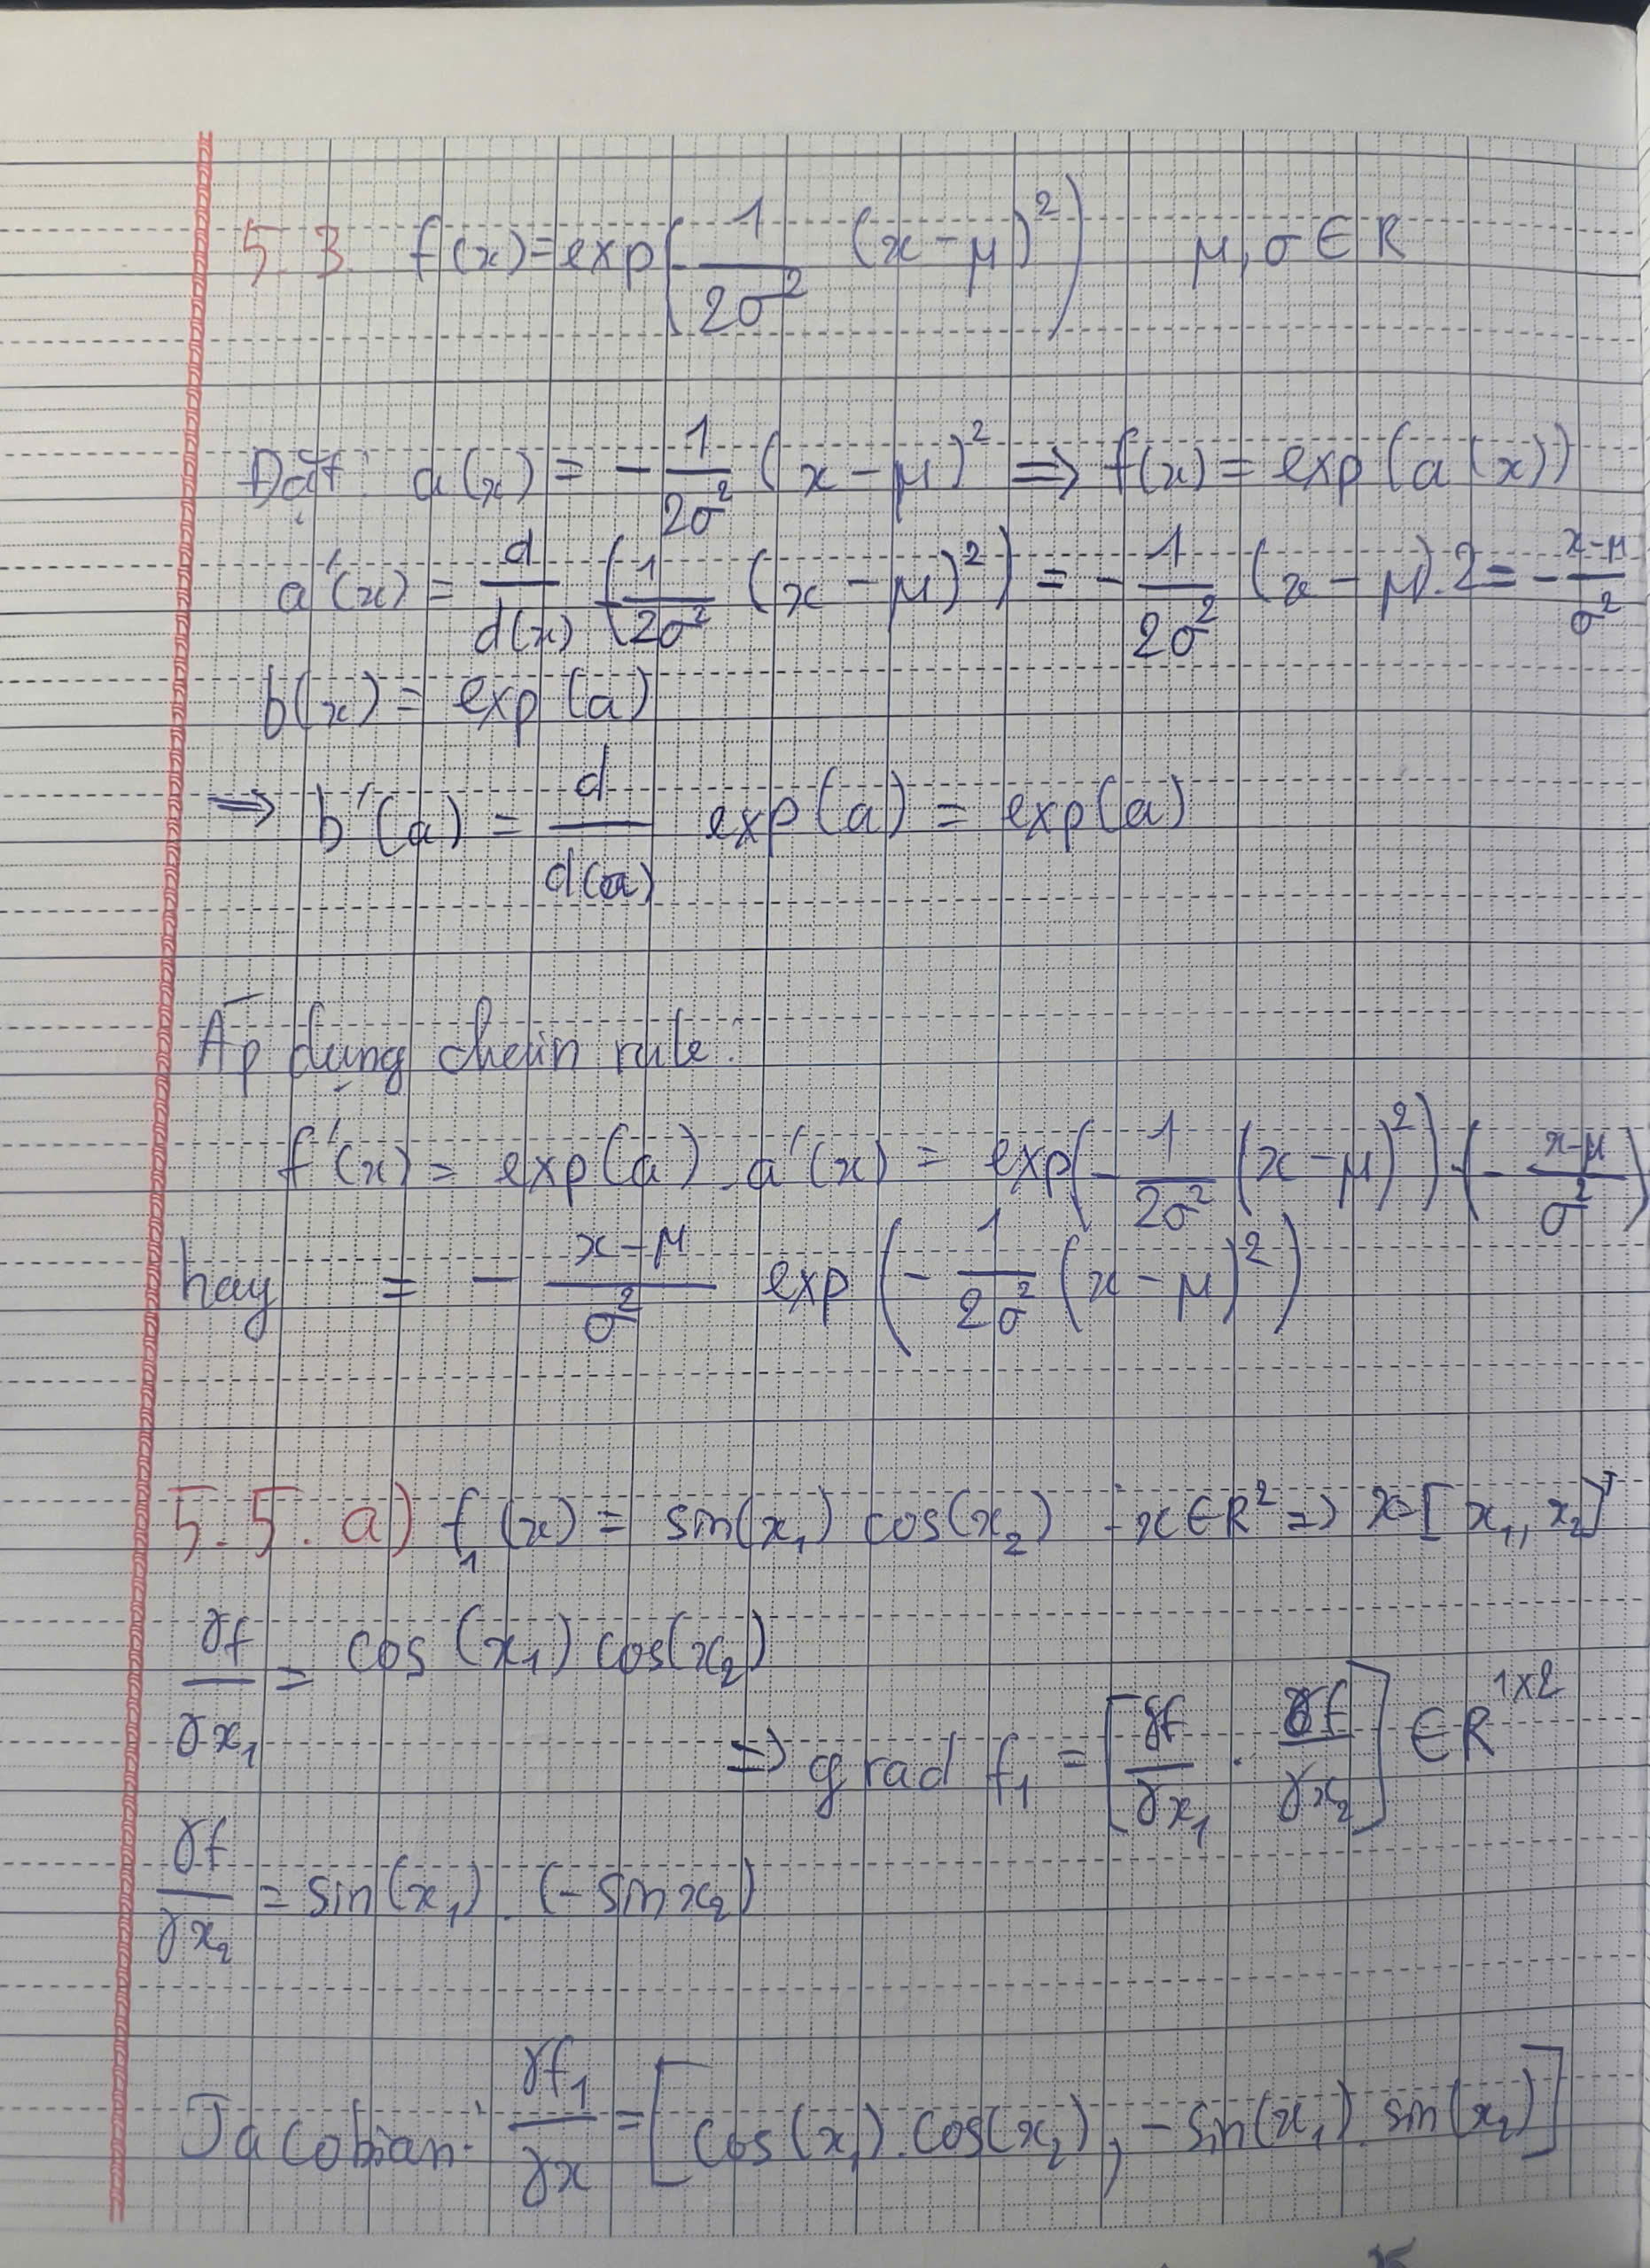 5.3. f(x)=exp(-1/2σ² (x-μ)²) μ,σ∈R
Đặt: a(x) = -1/2σ² (x-μ)² ⇒ f(x) = exp(a(x))
a'(x) = d/d(x) (-1/2σ² (x-μ)²) = -1/2σ² (x-μ).2 = -x-μ/σ²
b(x) = exp(a)
⇒ b'(a) = d/d(a) exp(a) = exp(a)
Áp dụng chain rule:
f'(x) = exp(a).a'(x) = exp(-1/2σ² (x-μ)²).(-x-μ/σ²)
hay = -x-μ/σ² exp(-1/2σ² (x-μ)²)
5.5. a) f₁(x) = sin(x₁) cos(x₂) : x∈R² ⇒ x=[x₁, x₂]ᵀ
∂f/∂x₁ = cos(x₁) cos(x₂)
⇒ grad f₁ = [∂f/∂x₁ . ∂f/∂x₂] ∈ R^1×2
∂f/∂x₂ = sin(x₁).(-sin x₂)
Jacobian: ∂f₁/∂x = [cos(x₁).cos(x₂), -sin(x₁).sin(x₂)]